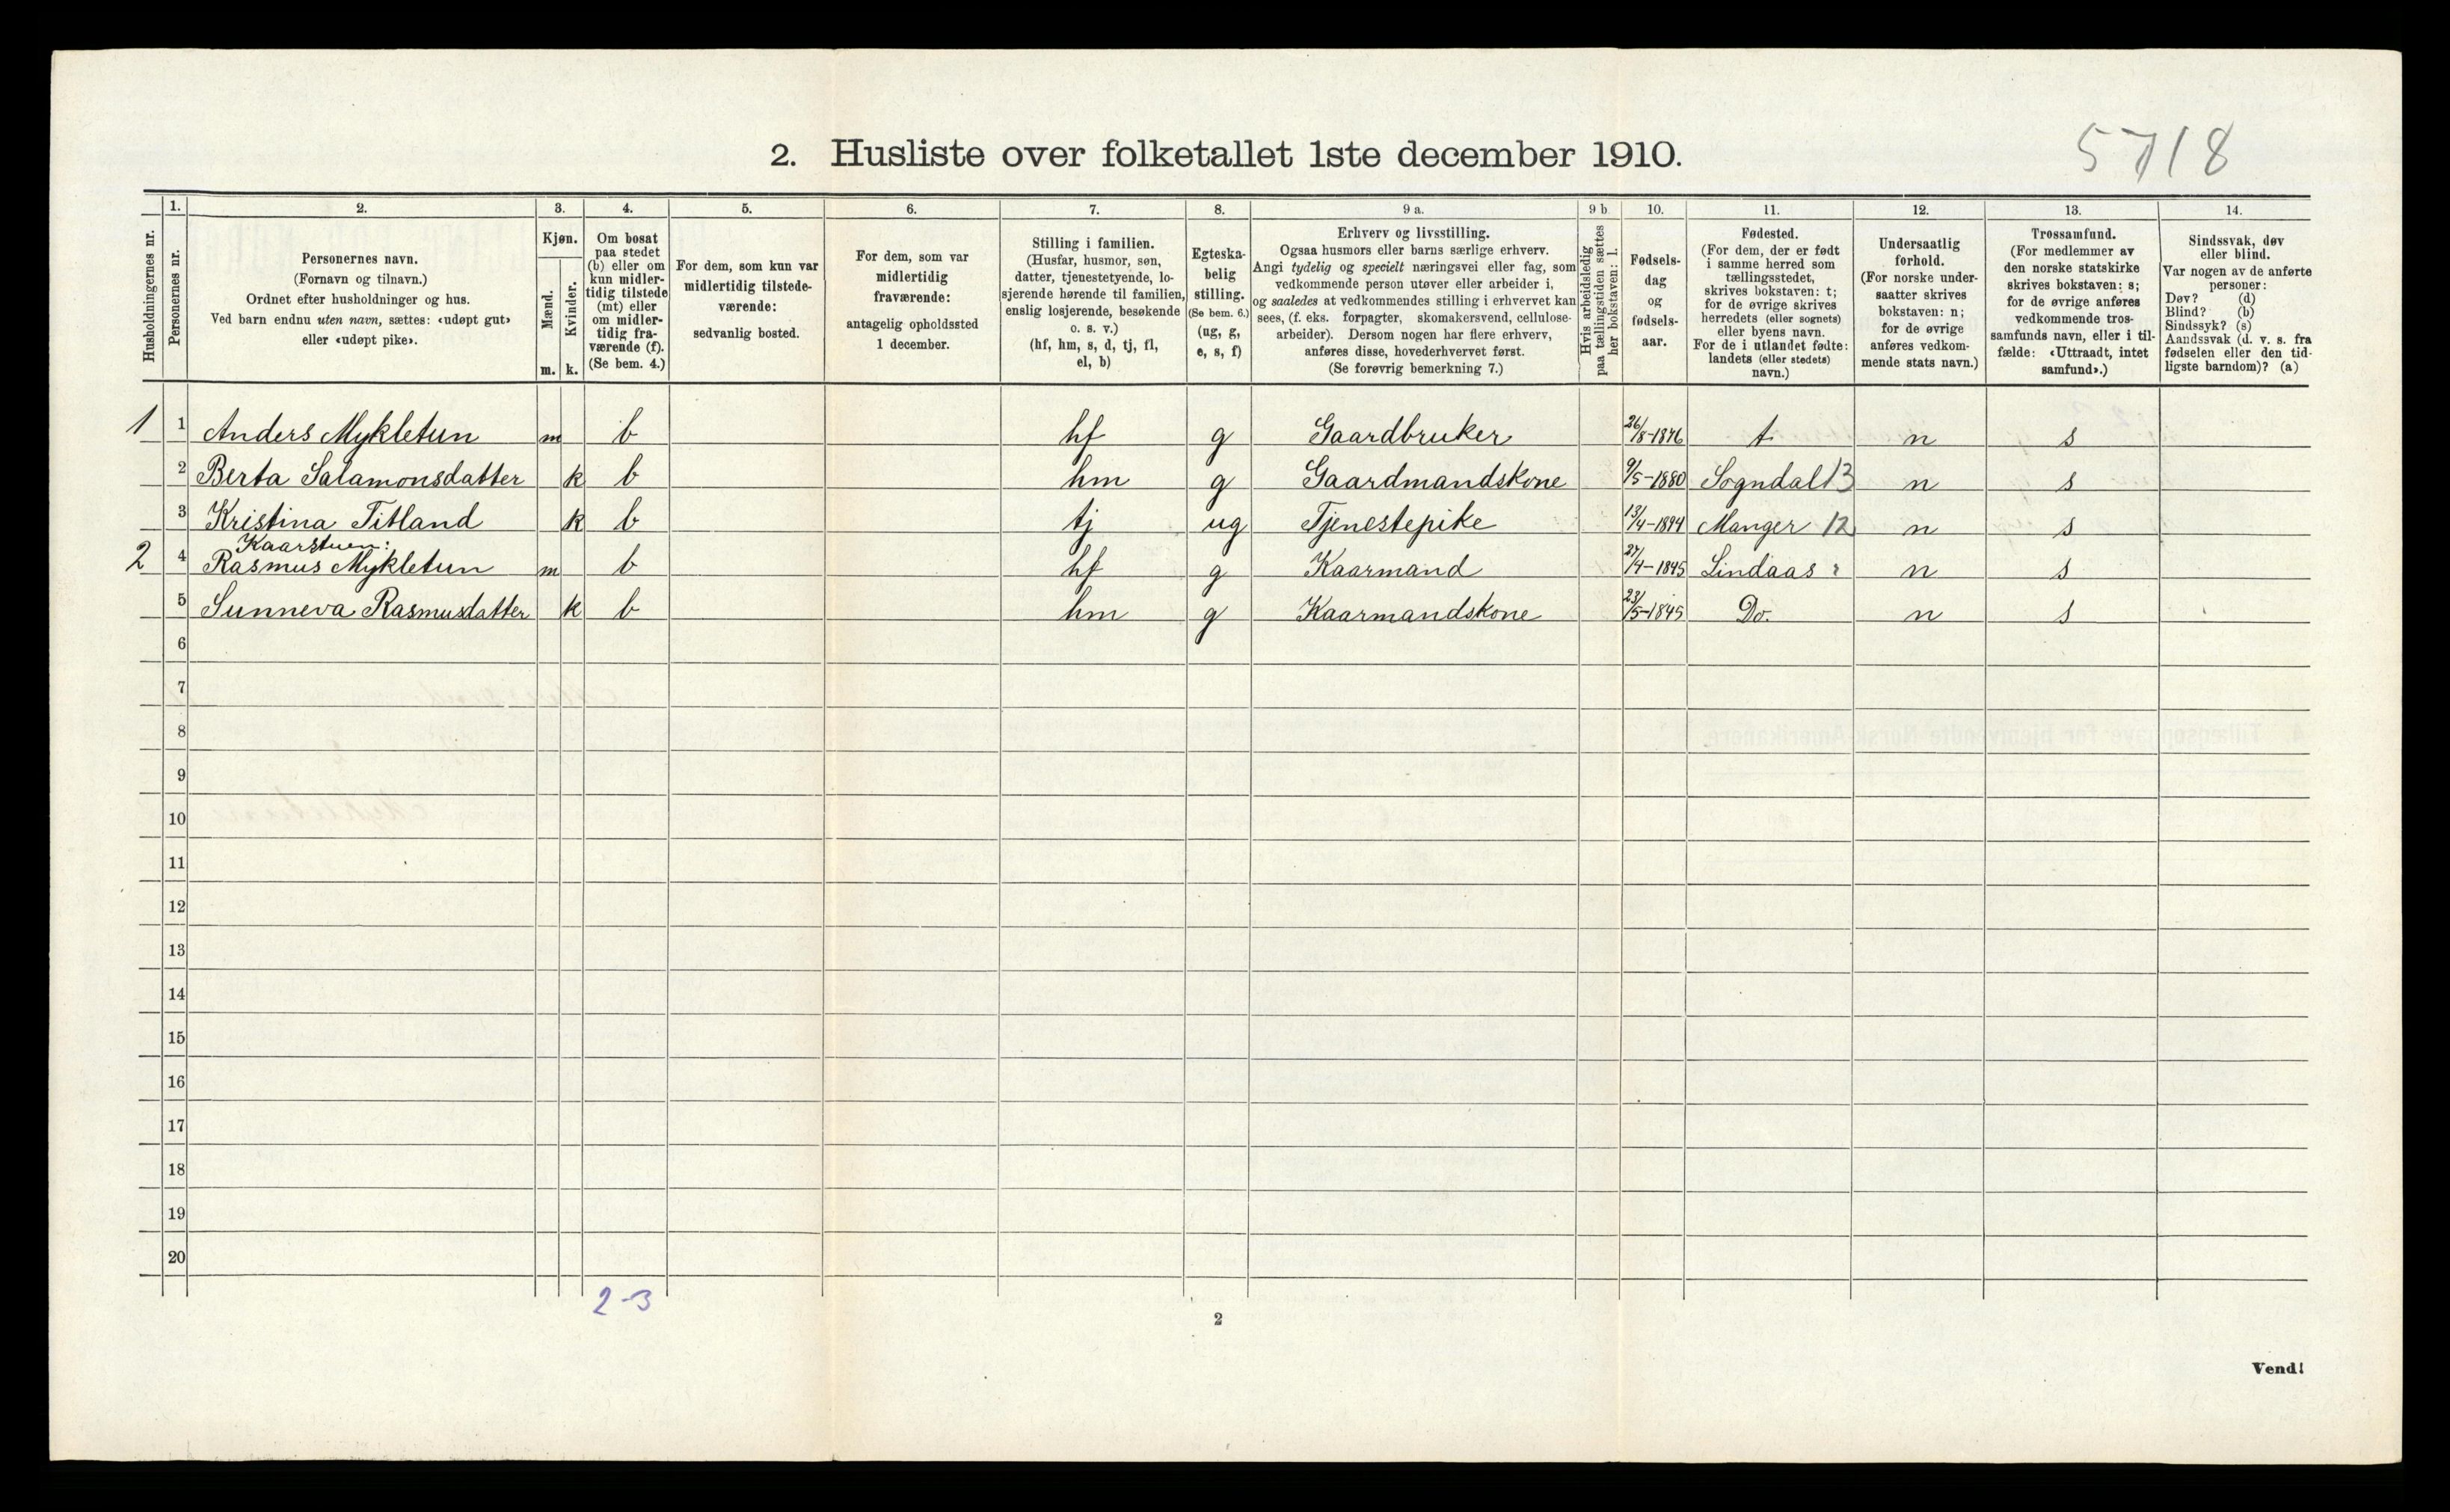 2. Husliste over folketallet 1ste december 1910.
5718
Husholdningernes nr.
1.
Personernes nr.
2.
Personernes navn.
(Fornavn og tilnavn.)
Ordnet efter husholdninger og hus.
Ved barn endnu uten navn, sættes: «udøpt gut»
eller «udøpt pike».
3.
Kjøn.
Mænd.
m.
Kvinder.
k.
4.
Om bosat
paa stedet
(b) eller om
kun midler-
tidig tilstede
(mt) eller
om midler-
tidig fra-
værende (f).
(Se bem. 4.)
5.
For dem, som kun var
midlertidig tilstede-
værende:
sedvanlig bosted.
6.
For dem, som var
midlertidig
fraværende:
antagelig opholdssted
1 december.
7.
Stilling i familien.
(Husfar, husmor, søn,
datter, tjenestetyende, lo-
sjerende hørende til familien,
enslig losjerende, besøkende
o. s. v.)
(hf, hm, s, d, tj, fl,
el, b)
8.
Egteska-
belig
stilling.
(Se bem. 6.)
(ug, g,
e, s, f)
9 a.
Erhverv og livsstilling.
Ogsaa husmors eller barns særlige erhverv.
Angi tydelig og specielt næringsvei eller fag, som
vedkommende person utøver eller arbeider i,
og saaledes at vedkommendes stilling i erhvervet kan
sees, (f. eks. forpagter, skomakersvend, cellulose-
arbeider). Dersom nogen har flere erhverv,
anføres disse, hovederhvervet først.
(Se forøvrig bemerkning 7.)
9 b
Hvis arbeidsledig
paa tællingstiden sættes
her bokstaven: l.
10.
Fødsels-
dag
og
fødsels-
aar.
11.
Fødested.
(For dem, der er født
i samme herred som
tællingsstedet,
skrives bokstaven: t;
for de øvrige skrives
herredets (eller sognets)
eller byens navn.
For de i utlandet fødte:
landets (eller stedets)
navn.)
12.
Undersaatlig
forhold.
(For norske under-
saatter skrives
bokstaven: n;
for de øvrige
anføres vedkom-
mende stats navn.)
13.
Trossamfund.
(For medlemmer av
den norske statskirke
skrives bokstaven: s;
for de øvrige anføres
vedkommende tros-
samfunds navn, eller i til-
fælde: «Uttraadt, intet
samfund».)
14.
Sindssvak, døv
eller blind.
Var nogen av de anførte
personer:
Døv? (d)
Blind? (b)
Sindssyk? (s)
Aandssvak (d. v. s. fra
fødselen eller den tid-
ligste barndom)? (a)
1 1 Anders Mykletun m b hf g Gaardbruker 26/8-1876 t n s
2 Berta Salamonsdatter k b hm g Gaardmandskone 9/5-1880 Sogndal 13 n s
3 Kristina Titland k b tj ug Tjenestepike 13/4-1894 Manger 12 n s
Kaarstuen:
2 4 Rasmus Mykletun m b hf g Kaarmand 27/4-1845 Lindaas n s
5 Sunneva Rasmusdatter k b hm g Kaarmandskone 23/5-1845 Do. n s
6
7
8
9
10
11
12
13
14
15
16
17
18
19
20
2-3
2
Vend!